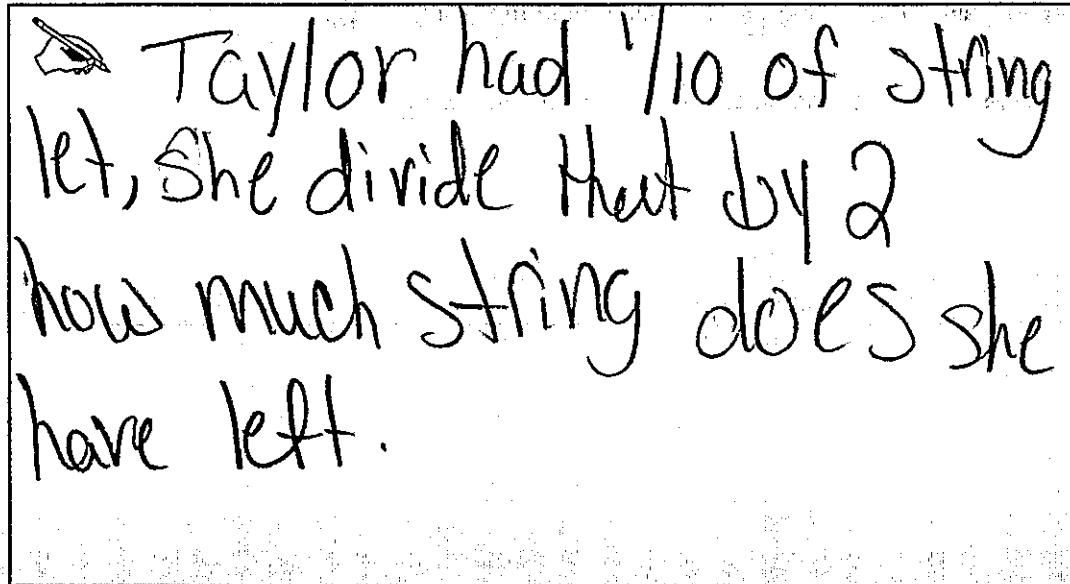 Taylor had 1/10 of string
let, she divide that by 2
how much string does she
have left.